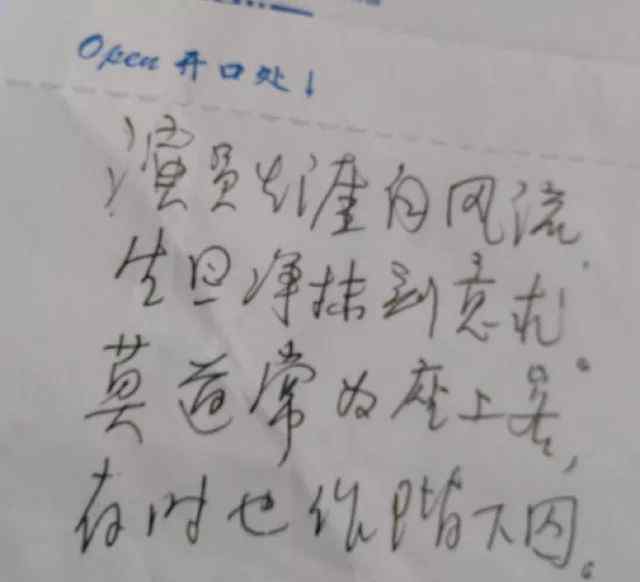 Open 开口处↓
演员生涯自风流，
生旦净抹到意扎。
莫道常为座上客，
有时也作阶下囚。